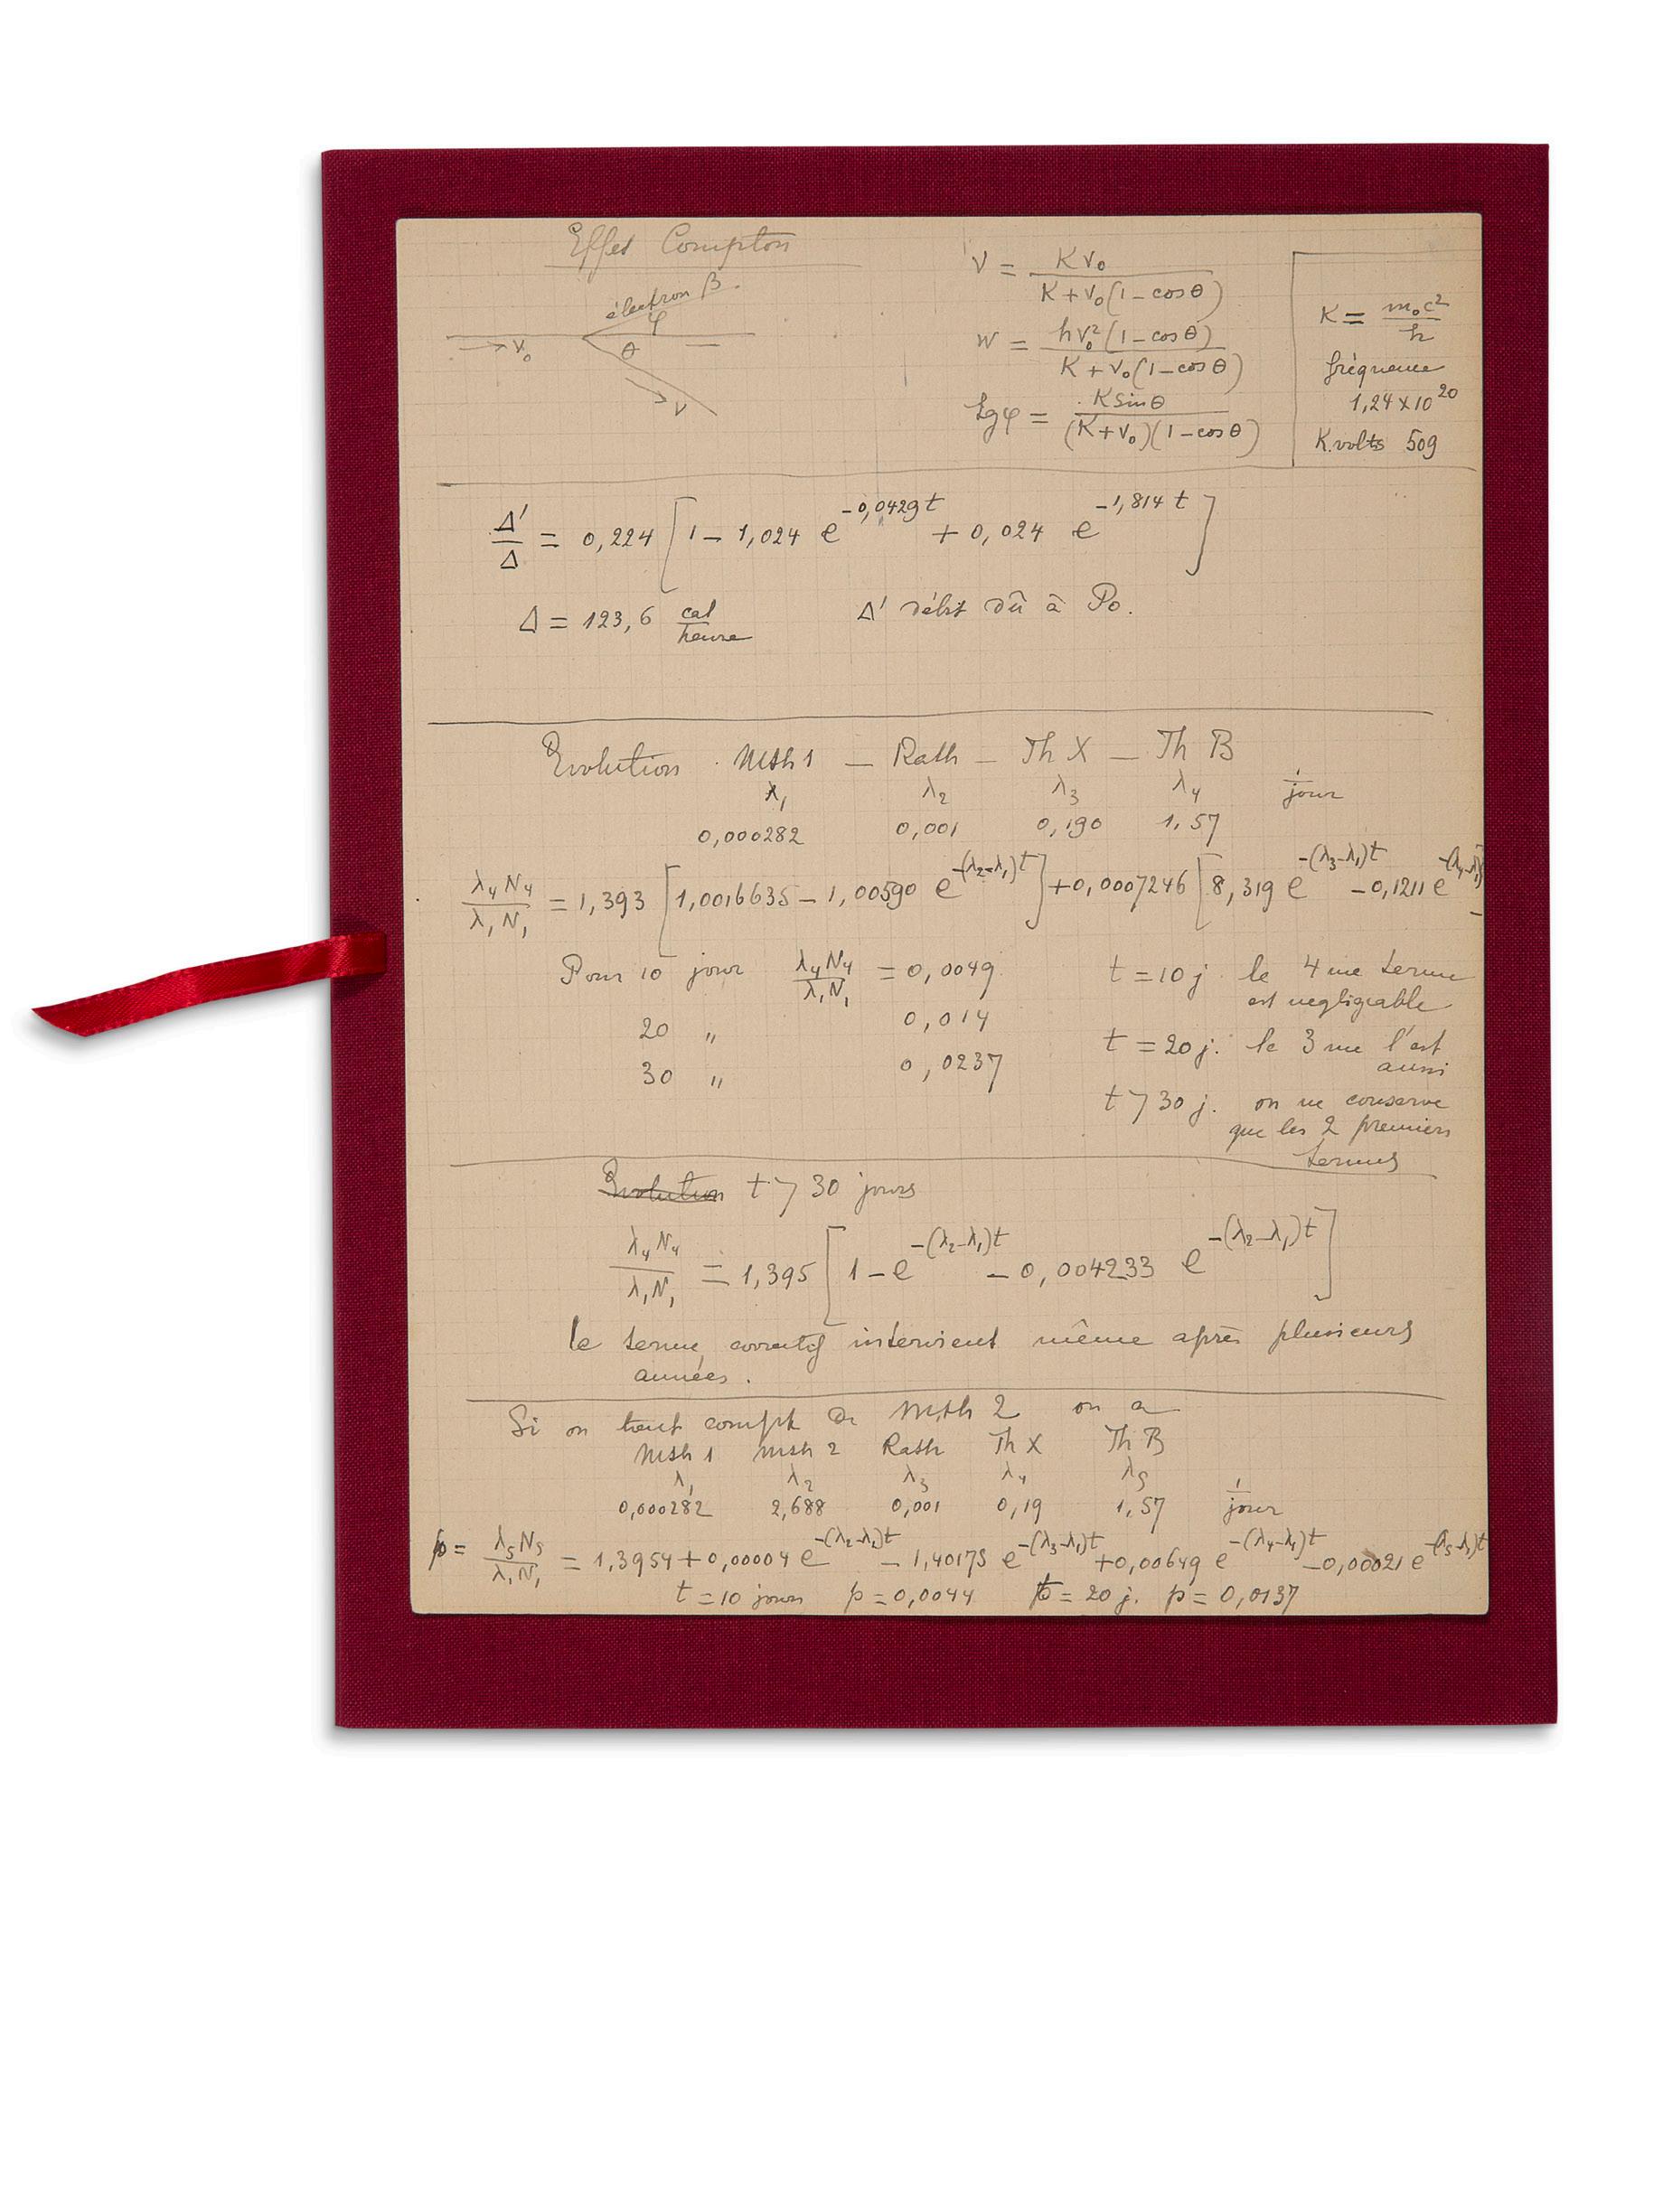 Effet Compton
électron β.
φ
→ ν₀
θ
ν
ν = Kν₀ / (K + ν₀(1 – cos θ))
w = hν₀²(1 – cos θ) / (K + ν₀(1 – cos θ))
tg φ = K sin θ / ((K + ν₀)(1 – cos θ))
K = m₀c² / h
fréquence
1,24 × 10²⁰
K.volts 509
Δ'/Δ = 0,224 [1 – 1,024 e^(–0,0429t) + 0,024 e^(–1,814t)]
Δ = 123,6 cal/heure Δ' débit dû à Po.
Evolution Msth1 – Rath – Th X – Th B
λ₁ λ₂ λ₃ λ₄ 1/jour
0,000282 0,001 0,190 1,57
λ₄N₄/λ₁N₁ = 1,393 [1,0016635 – 1,00590 e^(–(λ₂–λ₁)t)] + 0,0007246 [8,319 e^(–(λ₃–λ₁)t) – 0,1211 e^(–(λ₄–λ₁)
Pour 10 jour λ₄N₄/λ₁N₁ = 0,0049
20 " 0,014
30 " 0,0237
t = 10 j le 4me terme
est negligeable
t = 20 j. le 3me l'est
aussi
t > 30 j. on ne conserve
que les 2 premiers
termes
Evolution t > 30 jours
λ₄N₄/λ₁N₁ = 1,395 [1 – e^(–(λ₂–λ₁)t) – 0,004233 e^(–(λ₂–λ₁)t)]
le terme correctif intervient même après plusieurs
années.
Si on tient compte de Msth 2 on a
Msth 1 Msth 2 Rath Th X Th B
λ₁ λ₂ λ₃ λ₄ λ₅
0,000282 2,688 0,001 0,19 1,57 1/jour
p = λ₅N₅/λ₁N₁ = 1,3954 + 0,00004 e^(–(λ₂–λ₁)t) – 1,40175 e^(–(λ₃–λ₁)t) + 0,00649 e^(–(λ₄–λ₁)t) – 0,00021 e^(–(λ₅–λ₁)t)
t = 10 jours p = 0,0044 t = 20 j. p = 0,0137